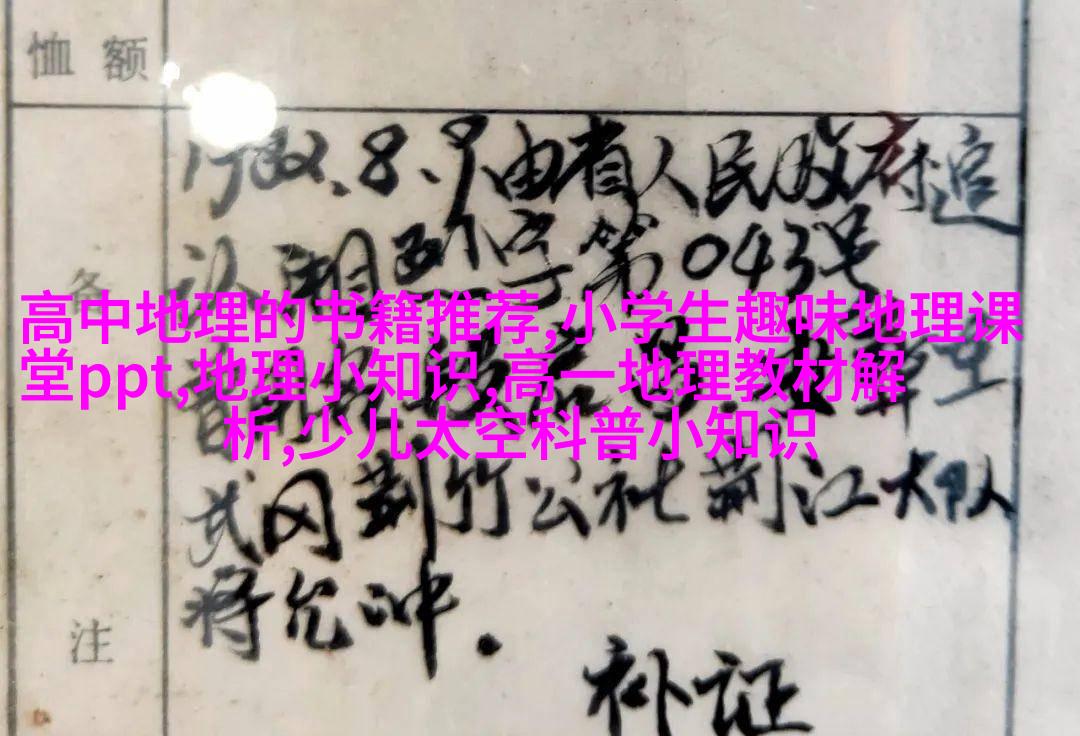 恤 额
1982.8.9由省人民政府追
认湘烈字第043号
备
高中地理的书籍推荐,小学生趣味地理课
堂ppt,地理小知识,高一地理教材解
析,少儿太空科普小知识
武冈荆竹公社荆江大队
将允冲.
注
补证